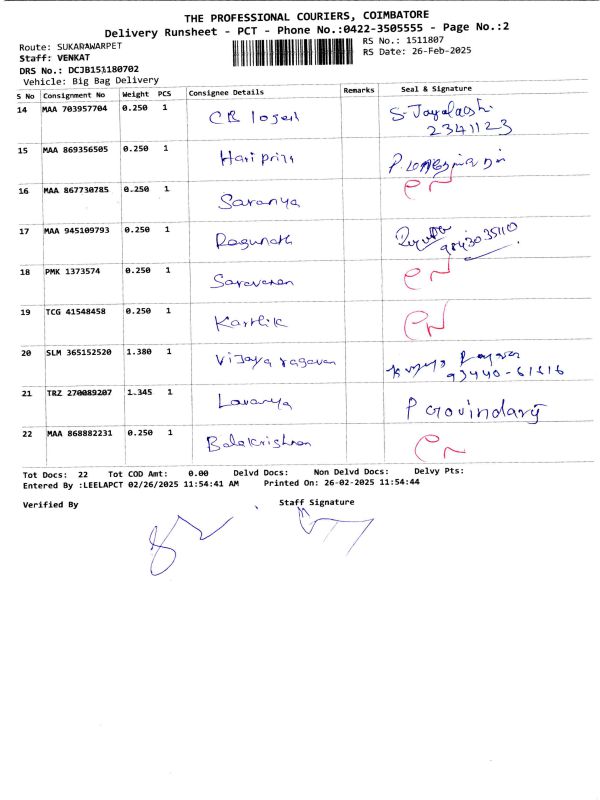 THE PROFESSIONAL COURIERS, COIMBATORE
Delivery Runsheet - PCT - Phone No.:0422-3505555 - Page No.:2
Route: SUKARAWARPET
RS No.: 1511807
Staff: VENKAT
RS Date: 26-Feb-2025
DRS No.: DCJB151180702
Vehicle: Big Bag Delivery
S No Consignment No Weight PCS Consignee Details Remarks Seal & Signature
14 MAA 703957704 0.250 1 CB
2341123
15 MAA 869356505 0.250 1 Hari priya
16 MAA 867730785 0.250 1 Saranya
17 MAA 945109793 0.250 1 Ragunath
9843035110
18 PMK 1373574 0.250 1 Saravanan
19 TCG 41548458 0.250 1 Karthik
20 SLM 365152520 1.380 1 Vijaya ragavan
93440-61616
21 TRZ 270089207 1.345 1 Lavanya P Govindaraj
22 MAA 868882231 0.250 1 Balakrishnan
Tot Docs: 22 Tot COD Amt: 0.00 Delvd Docs: Non Delvd Docs: Delvy Pts:
Entered By :LEELAPCT 02/26/2025 11:54:41 AM Printed On: 26-02-2025 11:54:44
Verified By Staff Signature